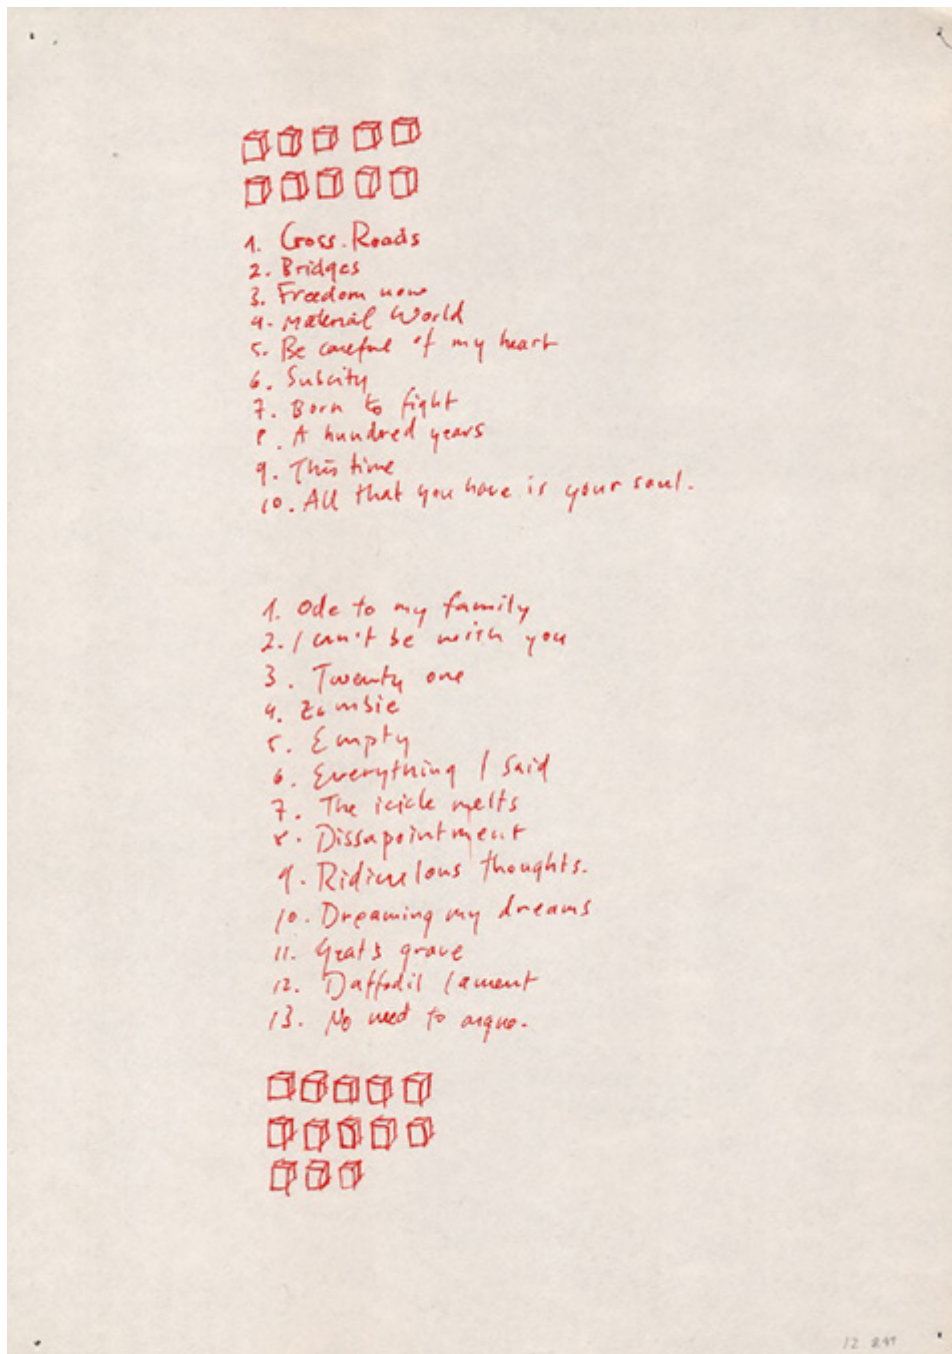 1. Cross. Roads
2. Bridges
3. Freedom now
4. Material World
5. Be careful of my heart
6. Subcity
7. Born to fight
8. A hundred years
9. This time
10. All that you have is your soul.
1. Ode to my family
2. I can't be with you
3. Twenty one
4. Zombie
5. Empty
6. Everything I said
7. The icicle melts
8. Dissapointment
9. Ridiculous thoughts.
10. Dreaming my dreams
11. Yeat's grave
12. Daffodil lament
13. No need to argue.